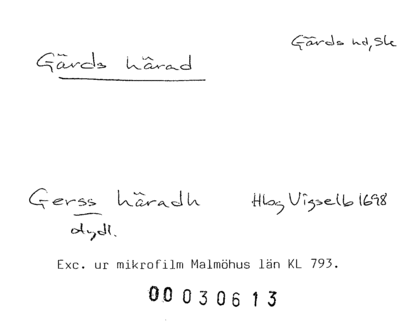 Gärds hd, Sk
Gärds härad
Gerss häradh Hbg Vigselb 1698
otydl.
Exc. ur mikrofilm Malmöhus län KL 793.
00 030613